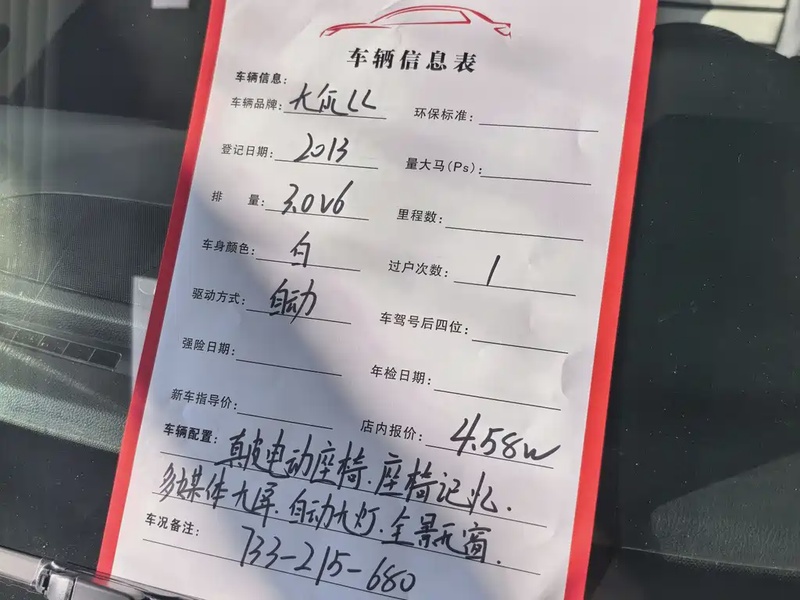 车辆信息表
车辆信息:
车辆品牌: 大众CC 环保标准:
登记日期: 2013 量大马(Ps):
排 量: 3.0V6 里程数:
车身颜色: 白 过户次数: 1
驱动方式: 自动 车驾号后四位:
强险日期: 年检日期:
新车指导价: 店内报价: 4.58w
车辆配置: 真皮电动座椅.座椅记忆.
多媒体大屏.自动大灯.全景天窗.
车况备注: 733-215-680